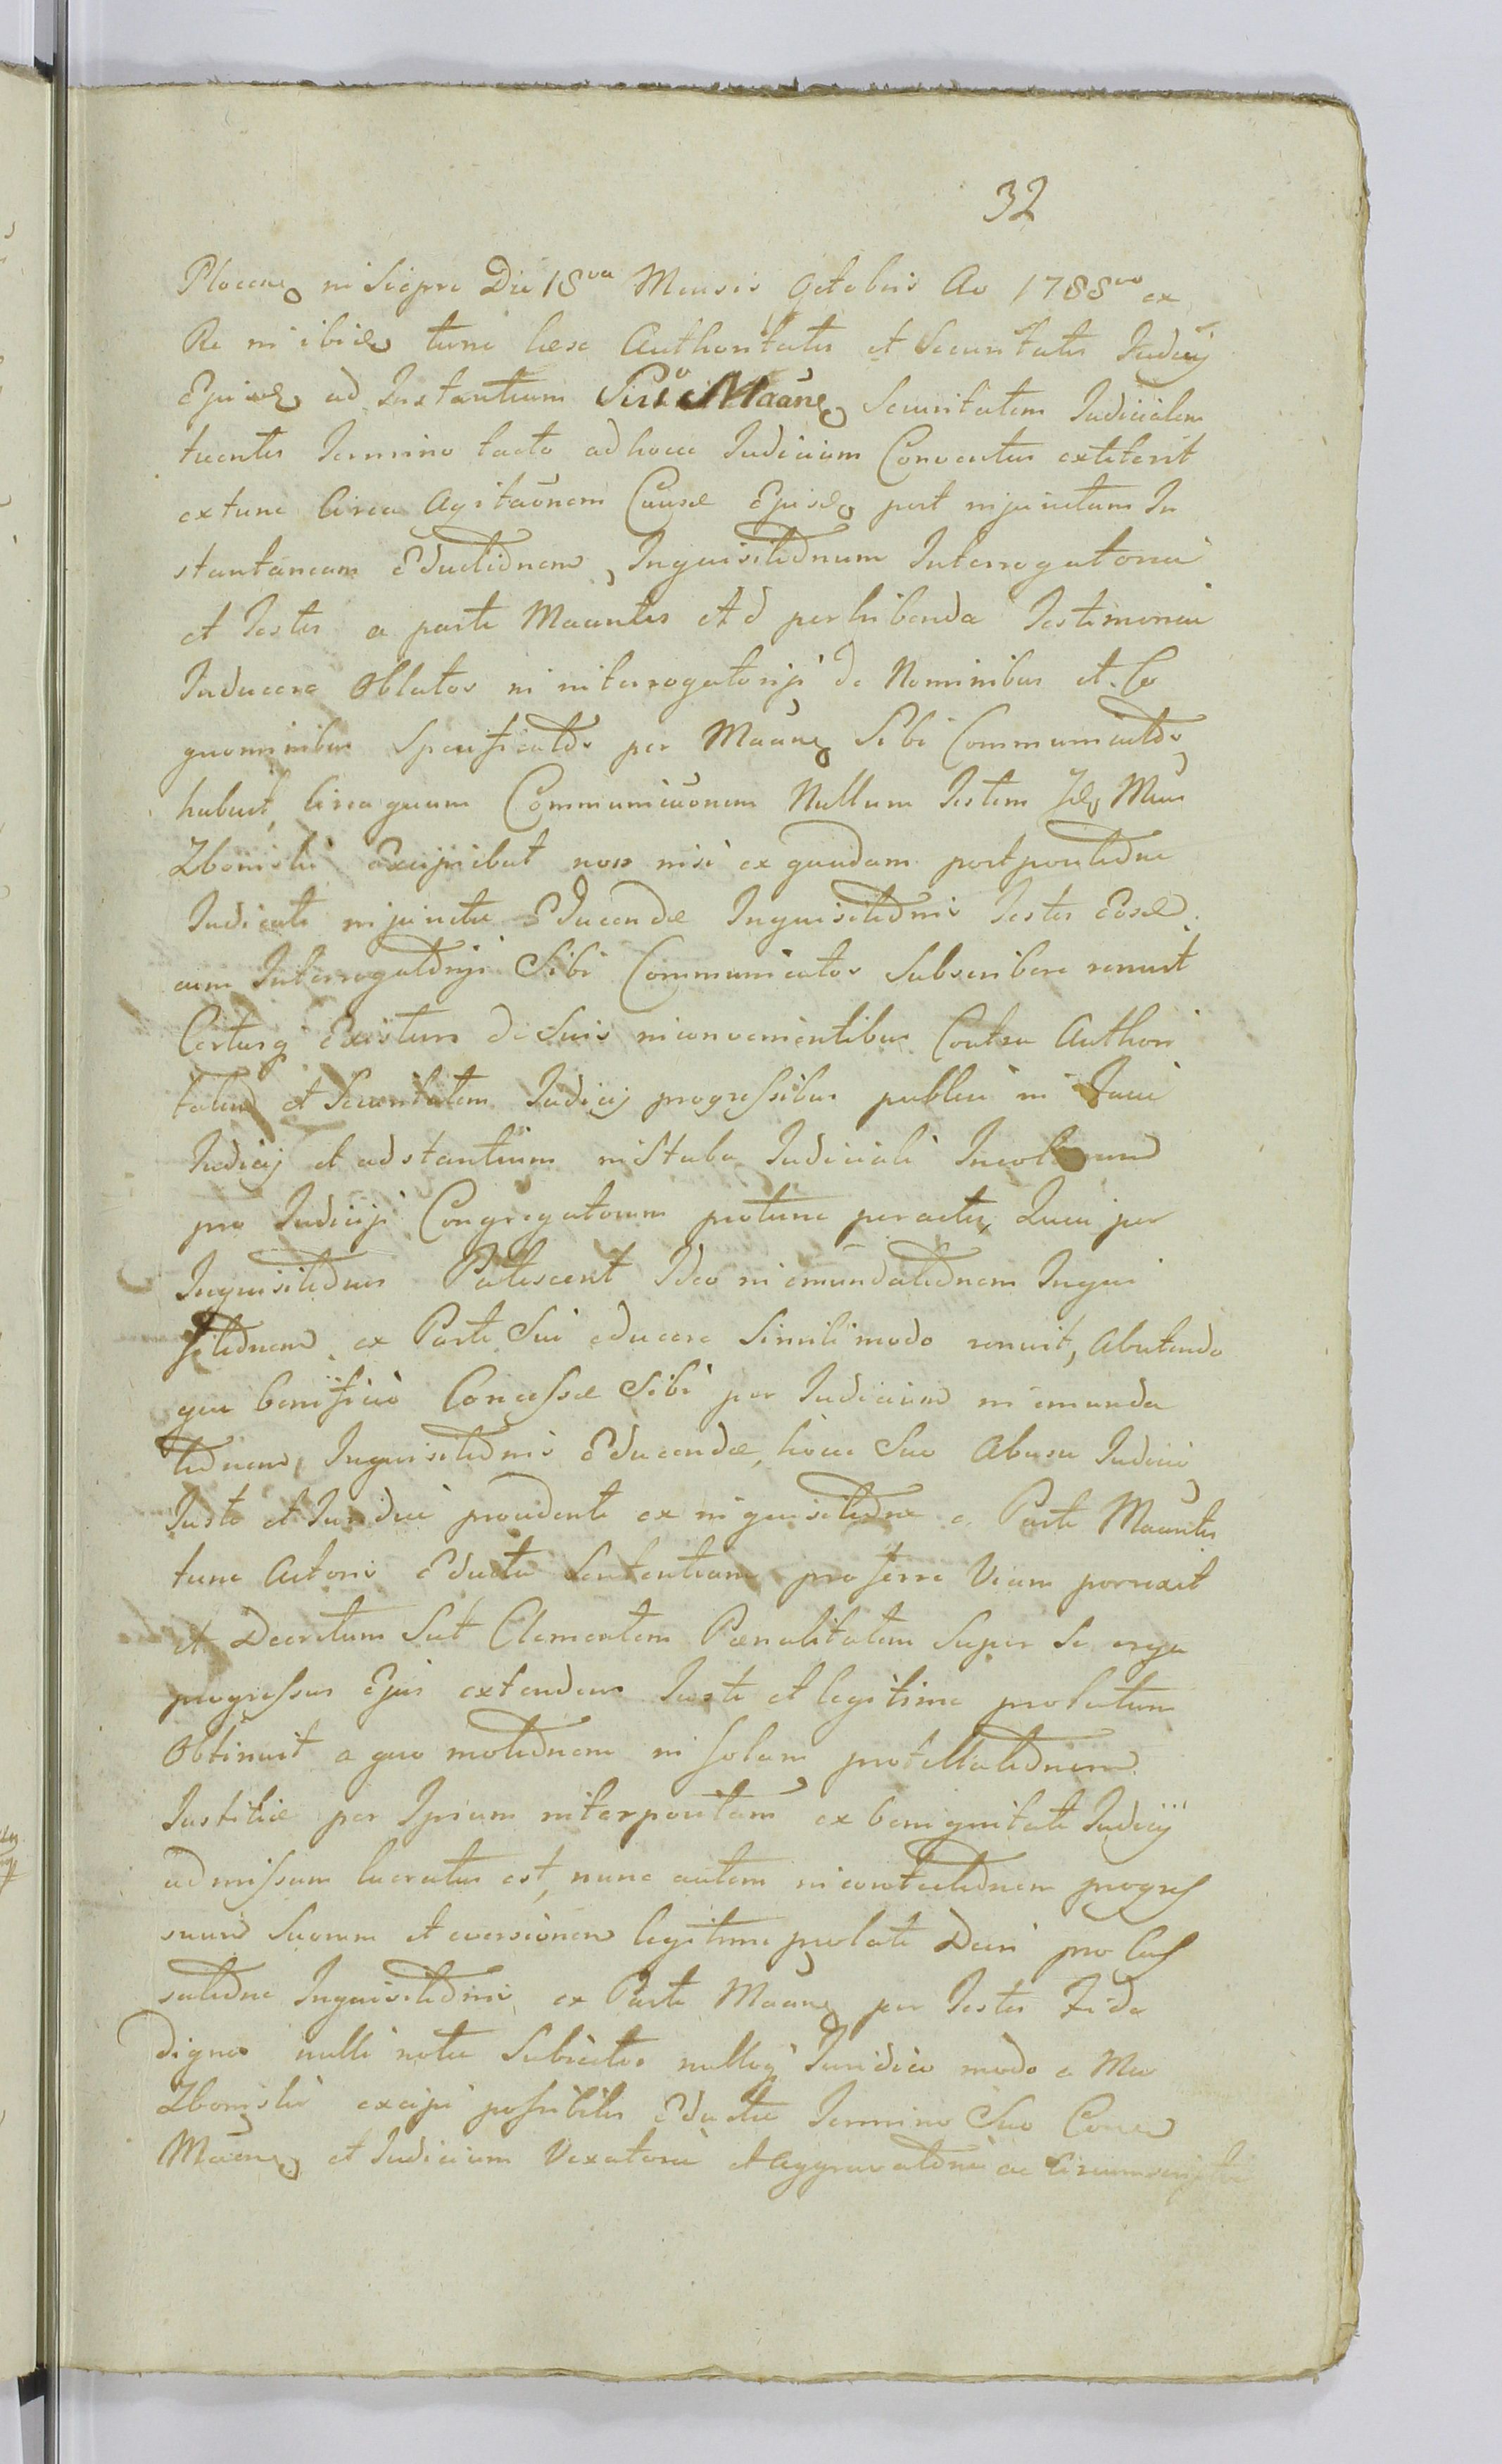 32
Plocen in Sierpc Die 18va Mensis Octobris Ao 1788vo ex
Re in ibid tunc læsæ Authoritatis et Securitatis Judicij
Ejusd ad Instantiam Maane Securitatem Judicialem
tuentis Termino tacto ad hocce Judicium Conventus extiterit
extunc Circa Agitaönem Causæ Ejusd post injunctam In
stantaneam Eductiõnem, Inquisitiõnum Interrogatoria
et Testes a parte Maantis Ad perhibenda Testimonia
Inducere Oblatos in interrogatorijs de Nominibus et Co
gnominibus Specificatos per Maane Sibi Communicatos
habuit, Circa quam Communicaönem Nullum Testem Mus
Zboinski Excipiebat non nisi ex quadam postpositiõne
Judicati injunctæ Educendæ Inquisitiõnis Testes Eosd
cum Interrogatõrijs Sibi Communicatos Subscribere renuit
Certusq Existens de Suis inconvenientibus Contra Authori
tatem et Securitatem Judicij progressibus publice in Facie
Judicij et adstantium in Stuba Judiciali Incolarum
pro Judicijs Congregatorum protunc peractis, Quæ per
Inquisitiõnes Patescent Ideo in emundatiõnem Inqui
sitiõnem ex Parte Sui educere Simili modo renuit, Abutendo
que beneficio Concessæ Sibi per Judicium in emunda
tiõnem, Inquisitiõnis Educendæ, hocce Suo Abusu Judicio
Juste et Juridice providente ex inquisitiõne e Parte Maantis
tunc Actoris Educta Sententiam proferre Viam porrexit
et Decretum Sat Clementem Pænalitatem Super Se erga
progressus Ejus extendens Juste et legitime prolatum
Obtinuit a quo motiõnem in Solam protellatiõnem
Justitiæ per Ipsum interpositam ex benignitate Judicij
admissam lucratus est, nunc autem in contectiõnem progres
suum Suorum et eversionem legitime prolati Dcti pro Cas
satiõne Inquisitiõnis ex Parte Maane per Testes Fide
dignos nulli notæ Subiectos nulloq Juridico modo a Mu
Zboinski excipi possibiles Eductæ Termino Suo Coned
Maane et Judicium Vexatorie et Aggravatõrie ac Circumscripte